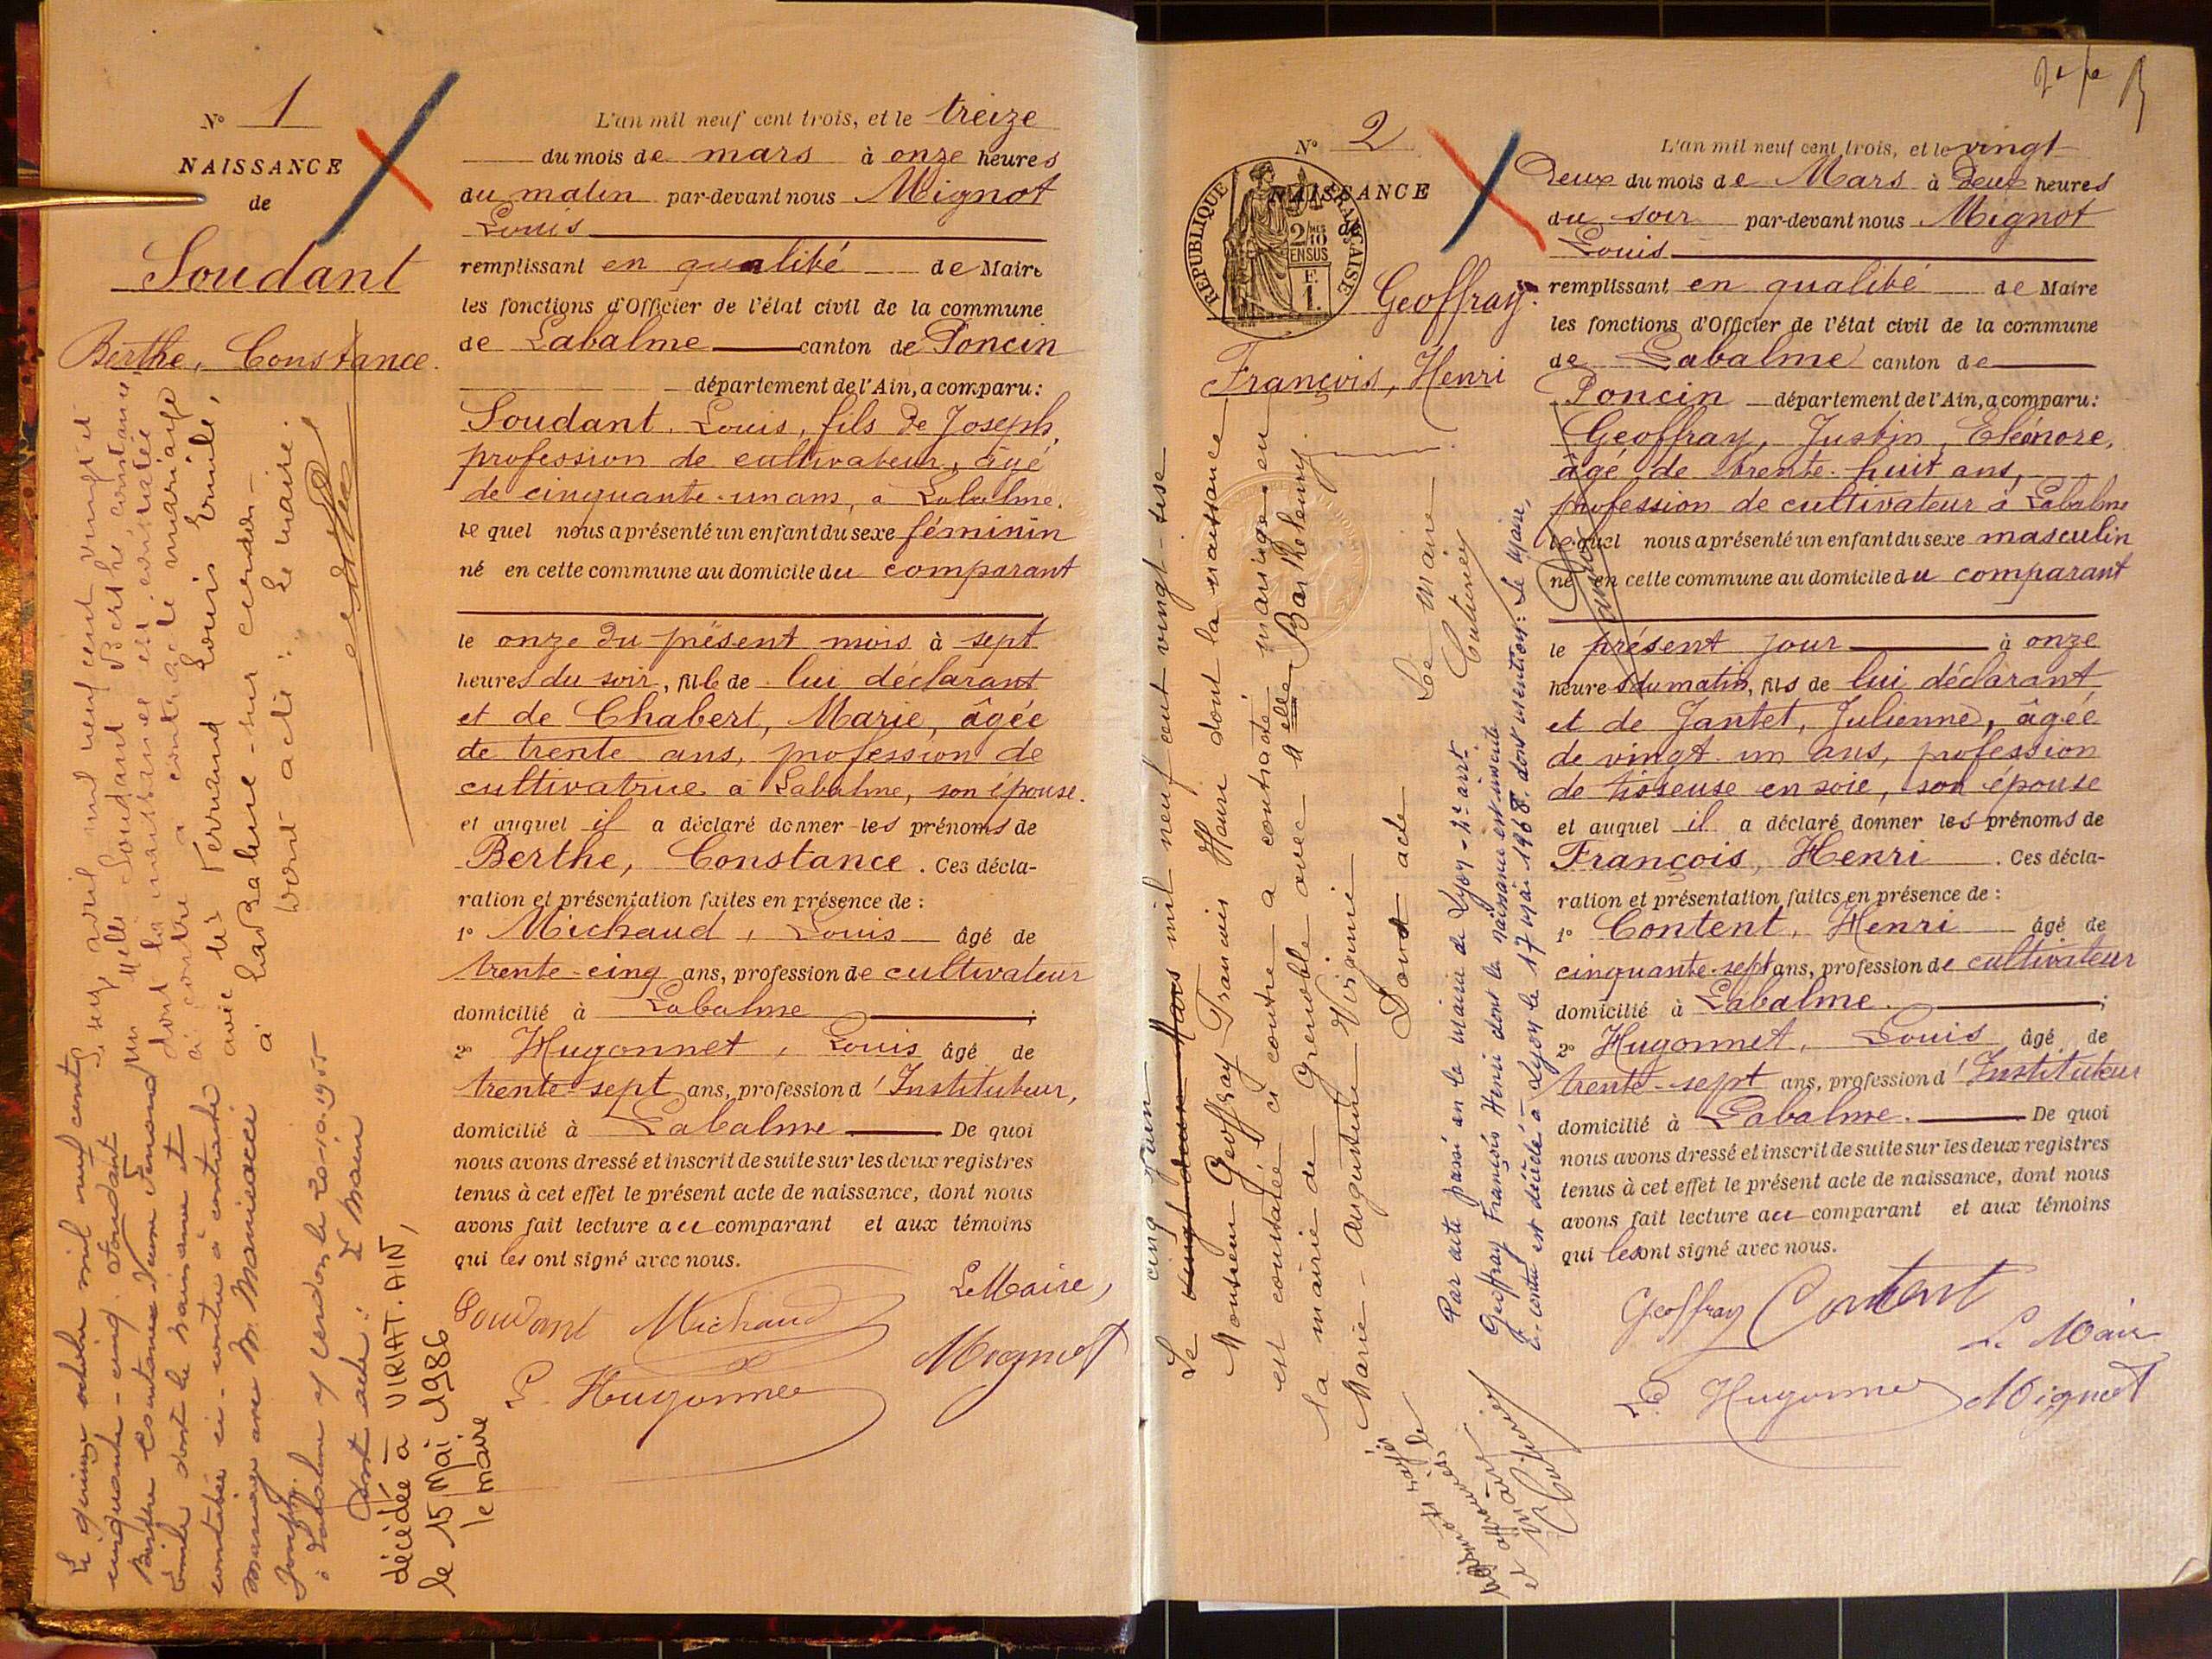 N° 1
NAISSANCE
de
Soudant
Berthe, Constance.
L'an mil neuf cent trois, et le treize
du mois de mars à onze heures
du matin par-devant nous Mignot
Louis
remplissant en qualité de Maire
les fonctions d'Officier de l'état civil de la commune
de Labalme canton de Poncin
département de l'Ain, a comparu:
Soudant, Louis, fils de Joseph,
profession de cultivateur, âgé
de cinquante-un ans, à Labalme.
le quel nous a présenté un enfant du sexe féminin
né en cette commune au domicile du comparant
le onze du présent mois à sept
heures du soir, fille de lui déclarant
et de Chabert, Marie, âgée
de trente ans, profession de
cultivatrice à Labalme, son épouse.
et auquel il a déclaré donner les prénoms de
Berthe, Constance. Ces décla-
ration et présentation faites en présence de :
1° Michaud, Louis âgé de
trente-cinq ans, profession de cultivateur
domicilié à Labalme ;
2° Hugonnet, Louis âgé de
trente-sept ans, profession d'Instituteur,
domicilié à Labalme De quoi
nous avons dressé et inscrit de suite sur les deux registres
tenus à cet effet le présent acte de naissance, dont nous
avons fait lecture au comparant et aux témoins
qui les ont signé avec nous.
Le Maire,
Soudant Michaud
Mignot
L. Hugonnet
Le seize avril mil neuf cent vingt et
un Melle Soudant Berthe Constance,
dont la naissance est constatée
ci contre a contracté mariage
avec Ferrand Louis Emile,
à Labalme-sur cerdon-
Dont acte : Le maire.
Le quinze octobre mil neuf cent
cinquante-cinq. Soudant
Berthe Constance Veuve Ferrand
Emile dont la naissance est
constatée ci-contre à contracté
mariage avec M. Maniacci
Joseph
à Labalme s/ Cerdon le 20-10-1955
Dont acte : Le Maire
décédée à VIRIAT. AIN,
le 15 Mai 1986
le maire
N° 2
NAISSANCE
de
RÉPUBLIQUE FRANÇAISE
2/10 EN SUS
F.
1.
Geoffray.
François, Henri
L'an mil neuf cent trois, et le vingt
Deux du mois de Mars à Deux heures
du soir par-devant nous Mignot
Louis
remplissant en qualité de Maire
les fonctions d'Officier de l'état civil de la commune
de Labalme canton de
Poncin département de l'Ain, a comparu:
Geoffray, Justin, Eléonore,
âgé de trente-huit ans,
profession de cultivateur à Labalme
lequel nous a présenté un enfant du sexe masculin
né en cette commune au domicile du comparant
le présent jour à onze
heures du matin, fils de lui déclarant
et de Jantet, Julienne, âgée
de vingt un ans, profession
de tisseuse en soie, son épouse
et auquel il a déclaré donner les prénoms de
François, Henri. Ces décla-
ration et présentation faites en présence de :
1° Content, Henri âgé de
cinquante-sept ans, profession de cultivateur
domicilié à Labalme. ;
2° Hugonnet, Louis âgé de
trente-sept ans, profession d'Instituteur
domicilié à Labalme. De quoi
nous avons dressé et inscrit de suite sur les deux registres
tenus à cet effet le présent acte de naissance, dont nous
avons fait lecture au comparant et aux témoins
qui les ont signé avec nous.
Geoffray Content
Le Maire
L. Hugonnet Mignot
cinq Juin
Le vingt deux Mars mil neuf cent vingt-sise
Monsieur Geoffray François Henri dont la naissance
est constatée ci contre a contracté mariage en
la mairie de Grenoble avec Melle Barthelemy
Marie-Augustine Virginie
Dont acte Le Maire
Cutivier
Par acte passé en la mairie de Lyon-2e arrt.
Geoffray François Henri dont la naissance est inscrite
ci-contre est décédé à Lyon le 17 Mai 1968. dont mention: Le Maire,